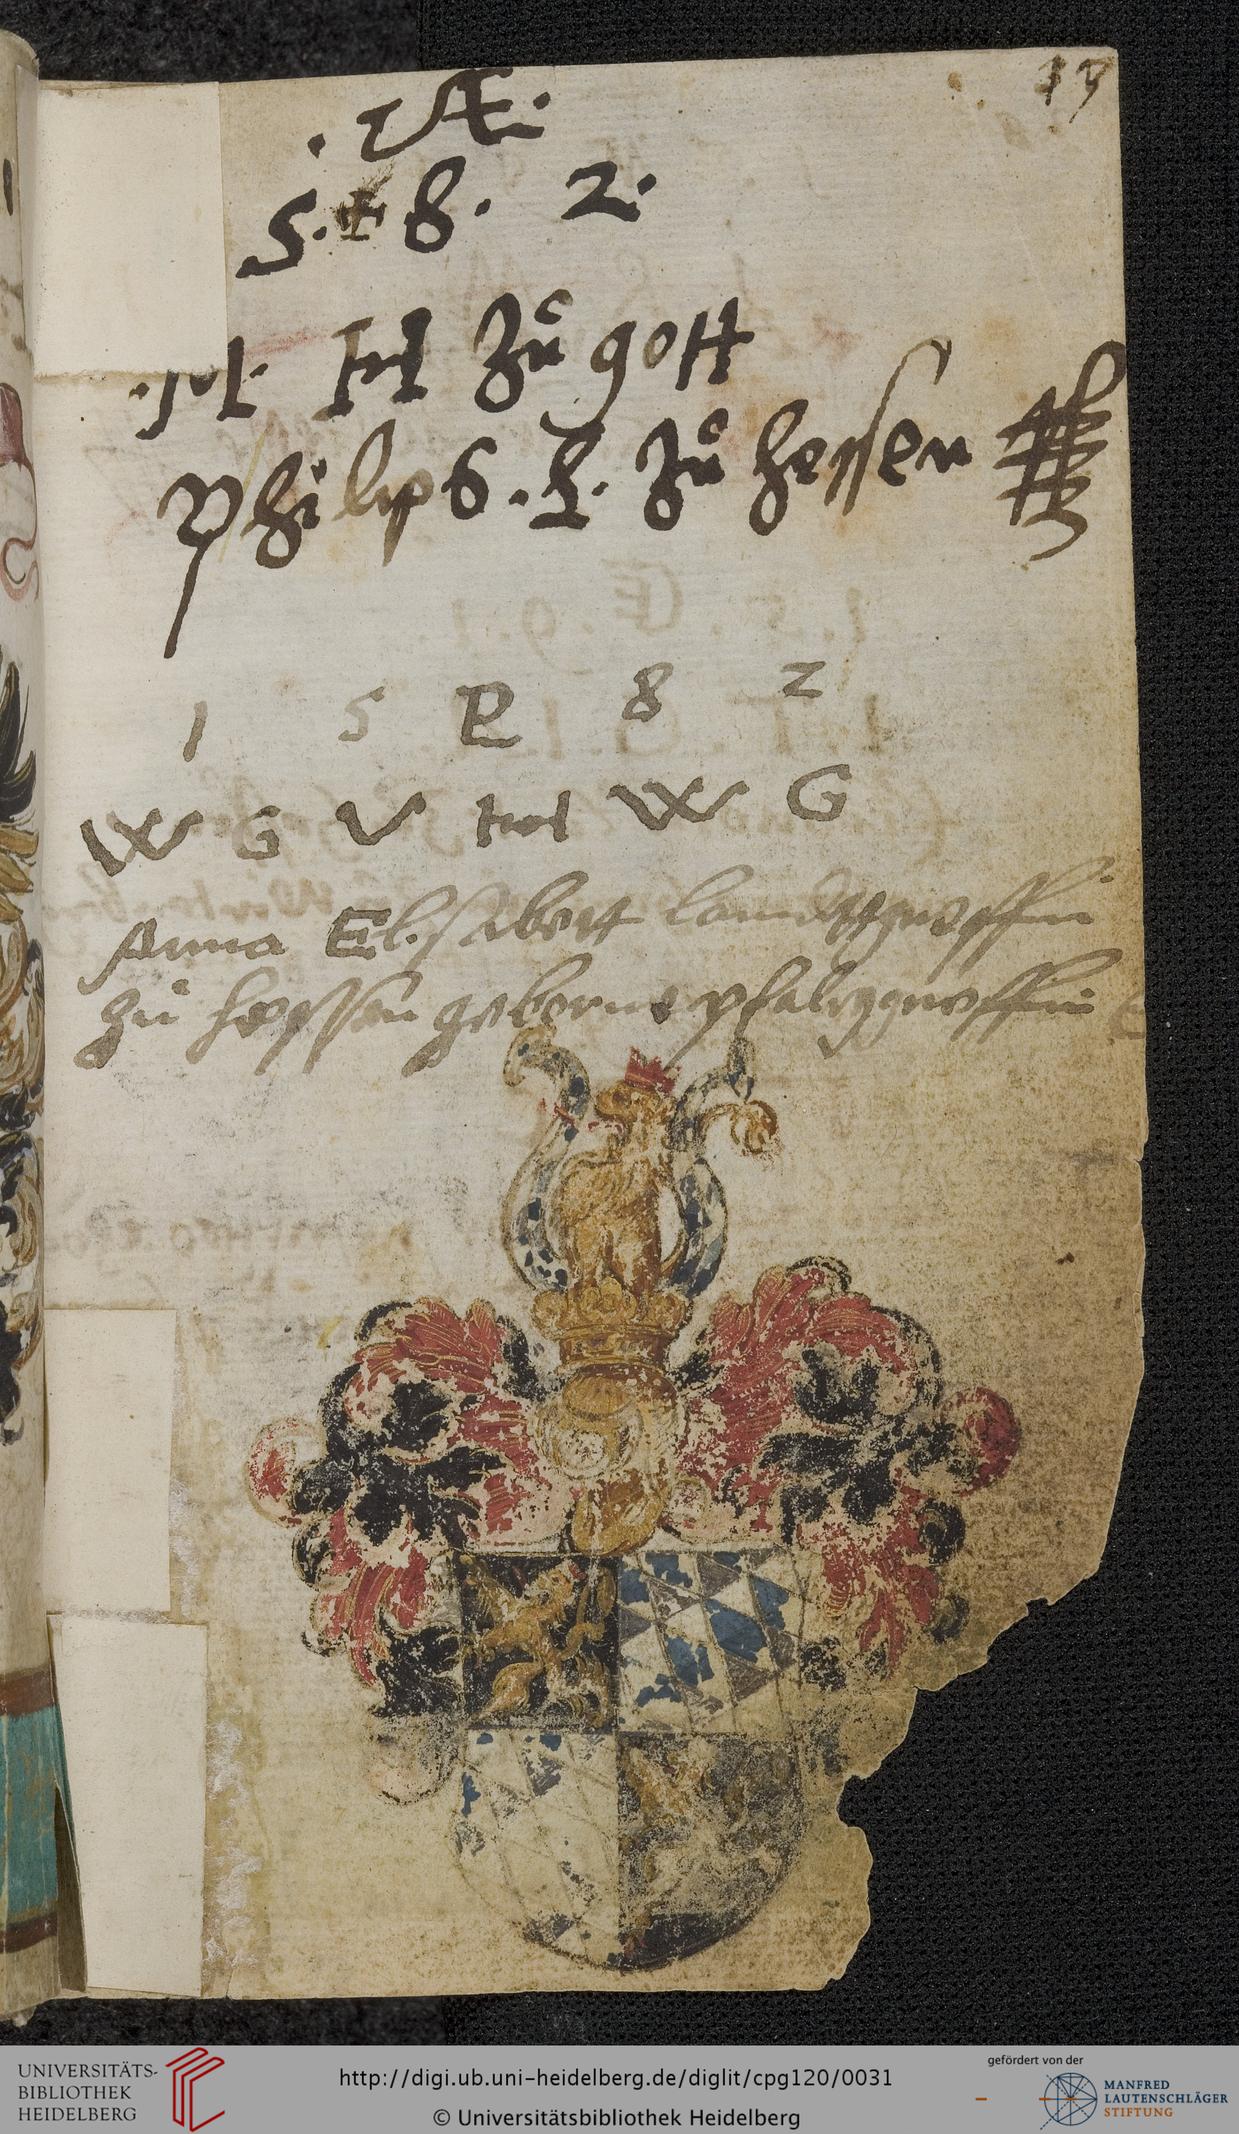 13
. V Æ .
5. 8. 2.
Zů gott
Philips . L . Zů Hessen
1 5 E 8 2
W G V W G
Anna Elisabett landtgreffin
zů hessen geborne pfalczgreffin
UNIVERSITÄTS-
BIBLIOTHEK
HEIDELBERG
http://digi.ub.uni-heidelberg.de/diglit/cpg120/0031
© Universitätsbibliothek Heidelberg
gefördert von der
MANFRED
LAUTENSCHLÄGER
STIFTUNG